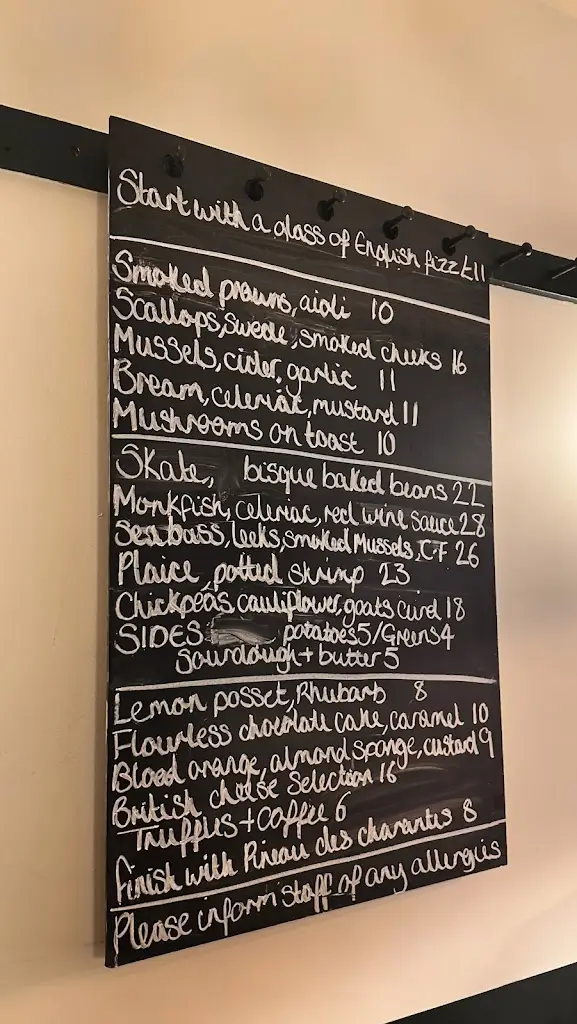 Start with a glass of English fizz £11
Smoked prawns, aioli 10
Scallops, swede, smoked cheeks 16
Mussels, cider, garlic 11
Bream, celeriac, mustard 11
Mushrooms on toast 10
Skate, bisque baked beans 22
Monkfish, celeriac, red wine sauce 28
Seabass, leeks, smoked Mussels, C.F 26
Plaice, potted shrimp 23
Chickpeas, cauliflower, goats curd 18
SIDES potatoes 5/Greens 4
Sourdough + butter 5
Lemon posset, Rhubarb 8
Flourless chocolate cake, caramel 10
Blood orange, almond sponge, custard 9
British cheese Selection 16
Truffles + Coffee 6
finish with Pineau des charantes 8
Please inform staff of any allergies